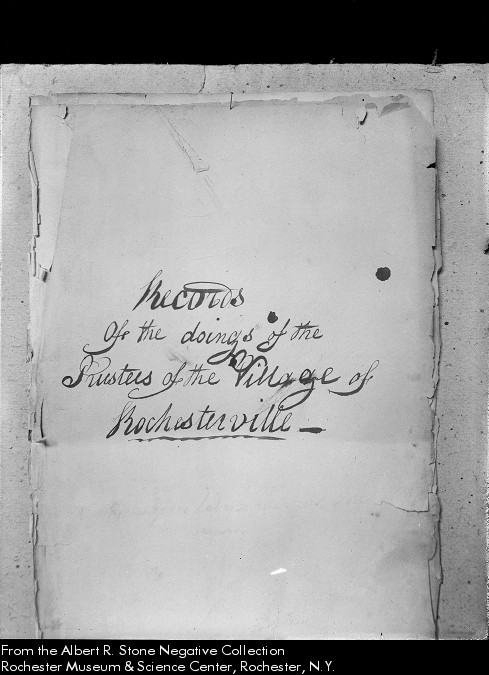 Records
Of the doings of the
Trustees of the Village of
Rochesterville —
From the Albert R. Stone Negative Collection
Rochester Museum & Science Center, Rochester, N.Y.